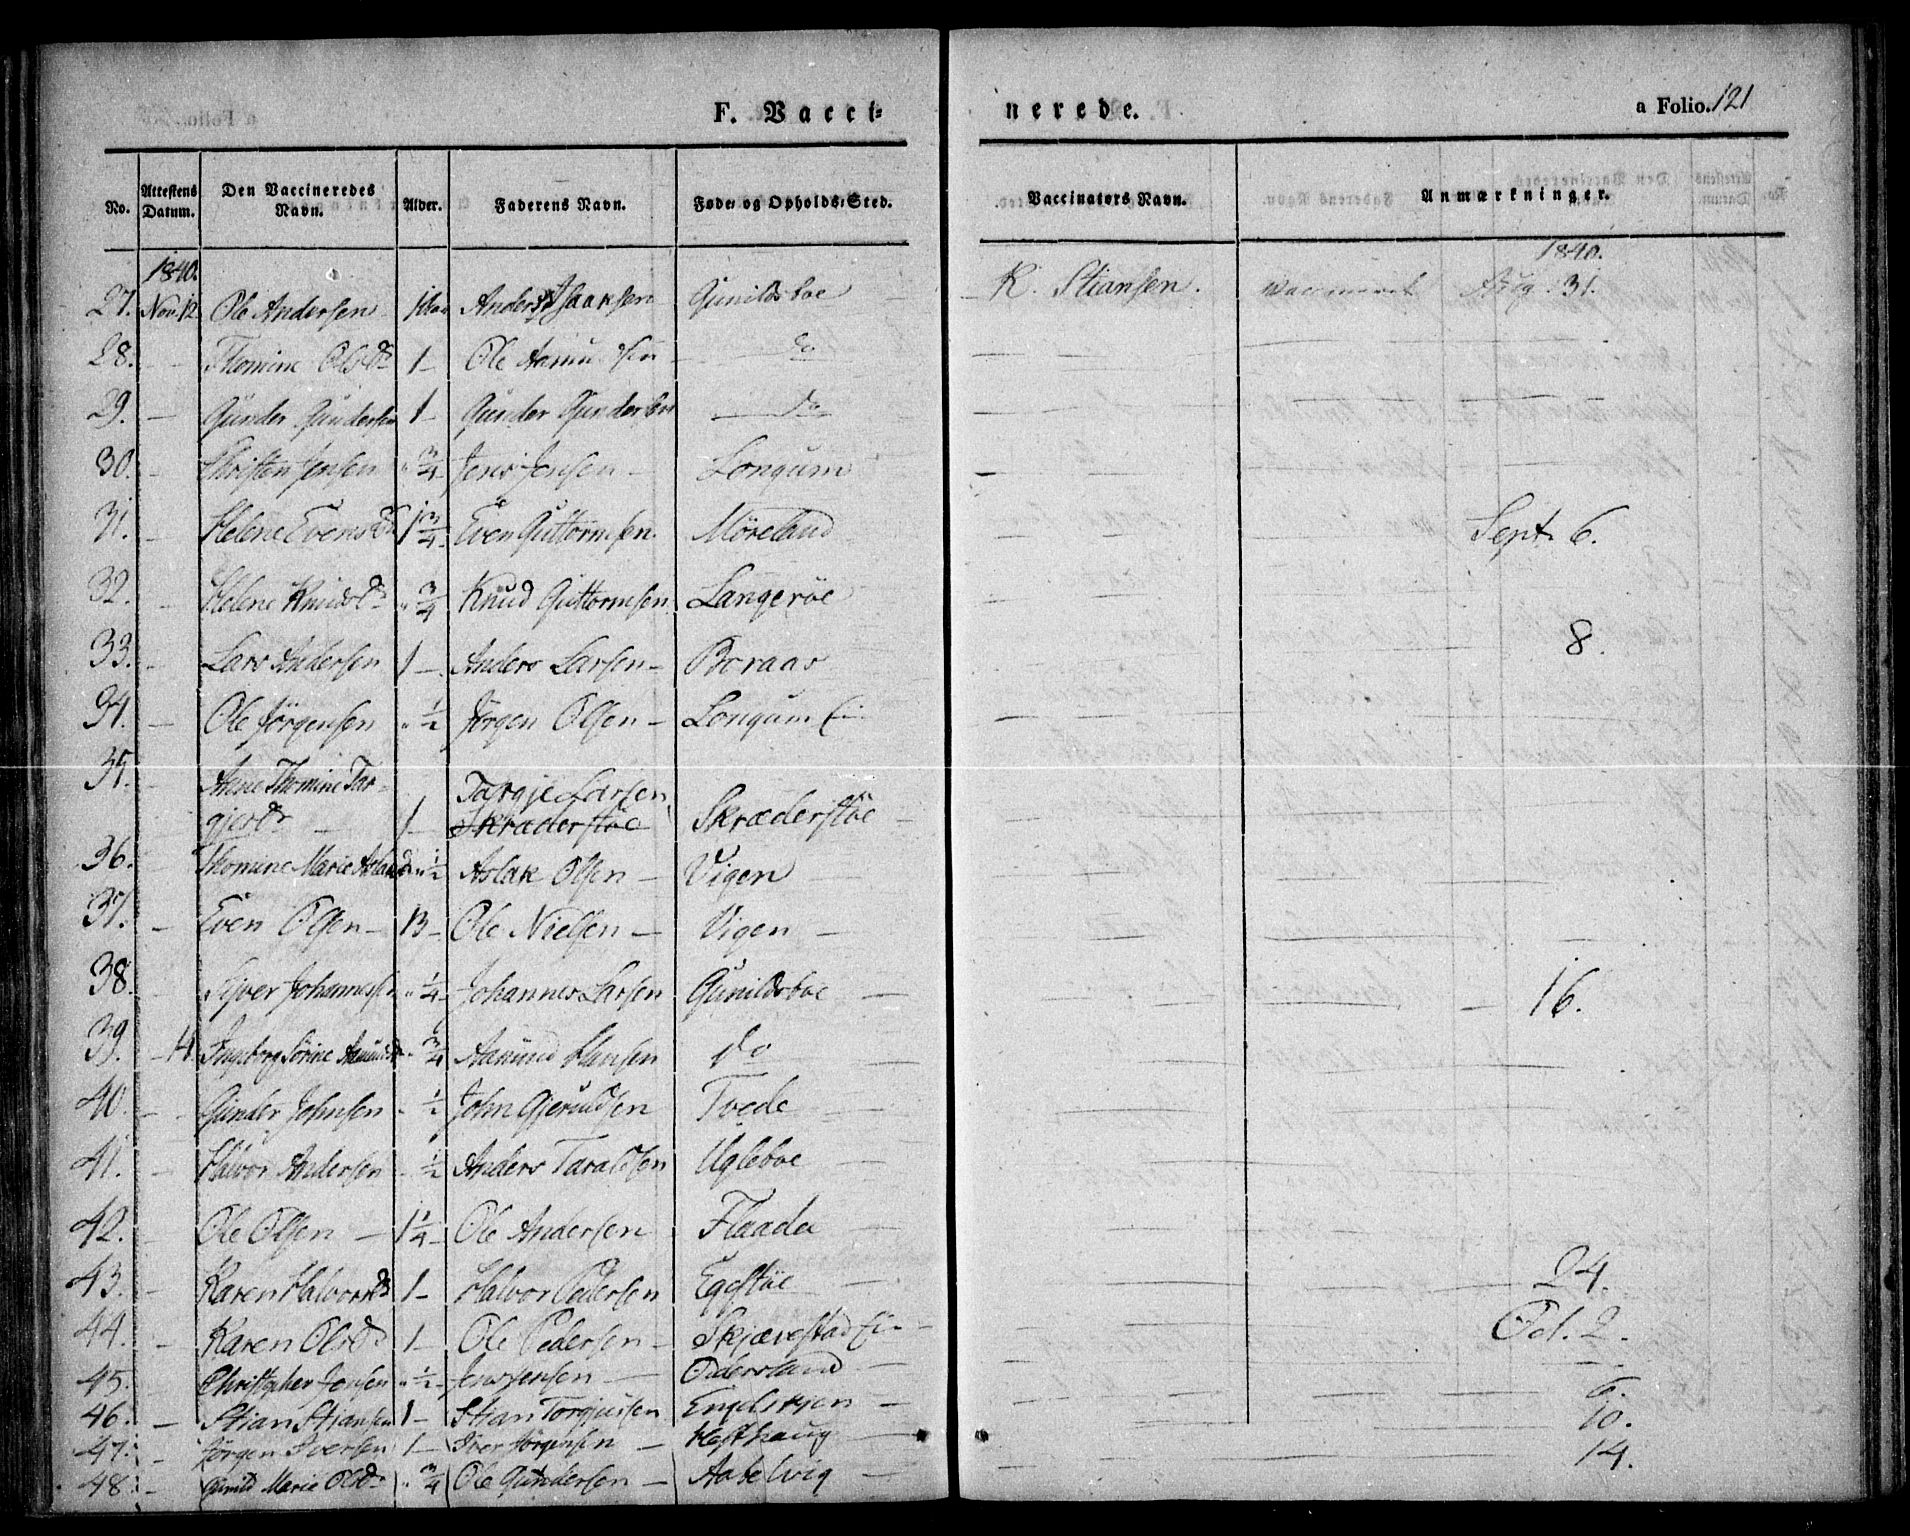 F. Vacci-
nerede.
a Folio. 121
No. Attestens Datum. Den Vaccineredes Navn. Alder. Faderens Navn. Føde- og Opholds-Sted. Vaccinators Navn. Anmærkninger.
1840. 1840.
27. Nov. 12 Ole Andersen 1 Aar Anders Isaaksen Gunildsboe — K. Stiansen. vaccineret Aug. 31.
28. — — Thomine Olsdr 1 — Ole Aamundsen — do
29. — Gunder Gundersen 1 — Gunder Gundersen — do
30. — Christen Jensen " 3/4 Jens Jensen — Longum
31. — Helene Evensdr 1 3/4 Even Guttormsen. Møreland Sept. 6.
32. — Helene Knudsdr " 3/4 Knud Guttormsen Langerøe
33. — Lars Andersen 1 — Anders Larsen — Boraas 8.
34. — Ole Jörgensen " 1/2 Jörgen Olsen — Longum Ei.
35. Anne Thomine Tar- Targje Larsen
gjersdr — 1 — Skræderstöe Skræderstöe —
36. Thomine Marie Aslaksdr " 1/2 Aslak Olsen — Vigen
37. — Even Olsen — 13 — Ole Nielsen — Vigen —
38. — Syver Johannessen " 1/4 Johannes Larsen Gunildsboe — 16.
39. — 14. Ingeborg Sörine Aamundsdr " 3/4 Aamund Hansen do
40. — Gunder Johnsen " 1/2 John Gjeruldsen Tvede —
41. — Halvor Andersen " 1/2 Anders Taraldsen Ugleboe —
42. — Ole Olsen — 1 1/4 — Ole Andersen Flaada
43. — Karen Halvorsdr 1 — Halvor Pedersen Egestöe 24.
44. — Karen Olsdr 1 — Ole Pedersen — Skjævestad Ei — Oct. 2.
45. — Christopher Jensen " 1/2 — Jens Jensen — Odersland — —
46. — Stian Stiansen 1 — Stian Torgjussen Engelskjen — 6.
47. — Jørgen Iversen 1 — Iver Jørgensen — Hesthaug 10.
48. — Gunild Marie Olsdr " 3/4 Ole Gundersen — Aabelvig — 14.